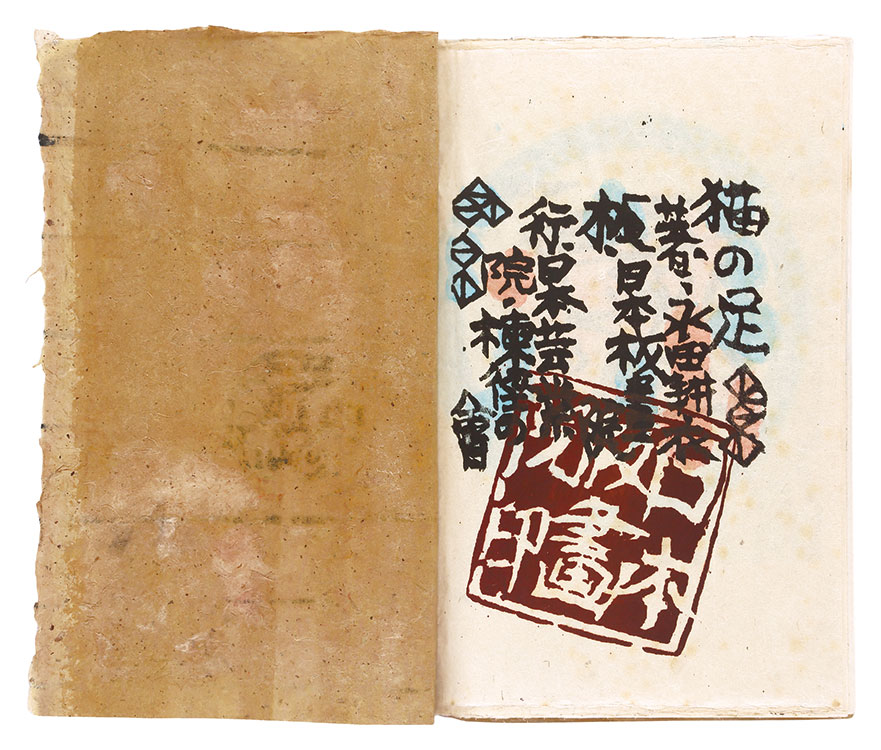 猫の足
著・永田耕衣
板・日本板畫院
行・日本芸業
院・棟
會
日本
板畫
院印